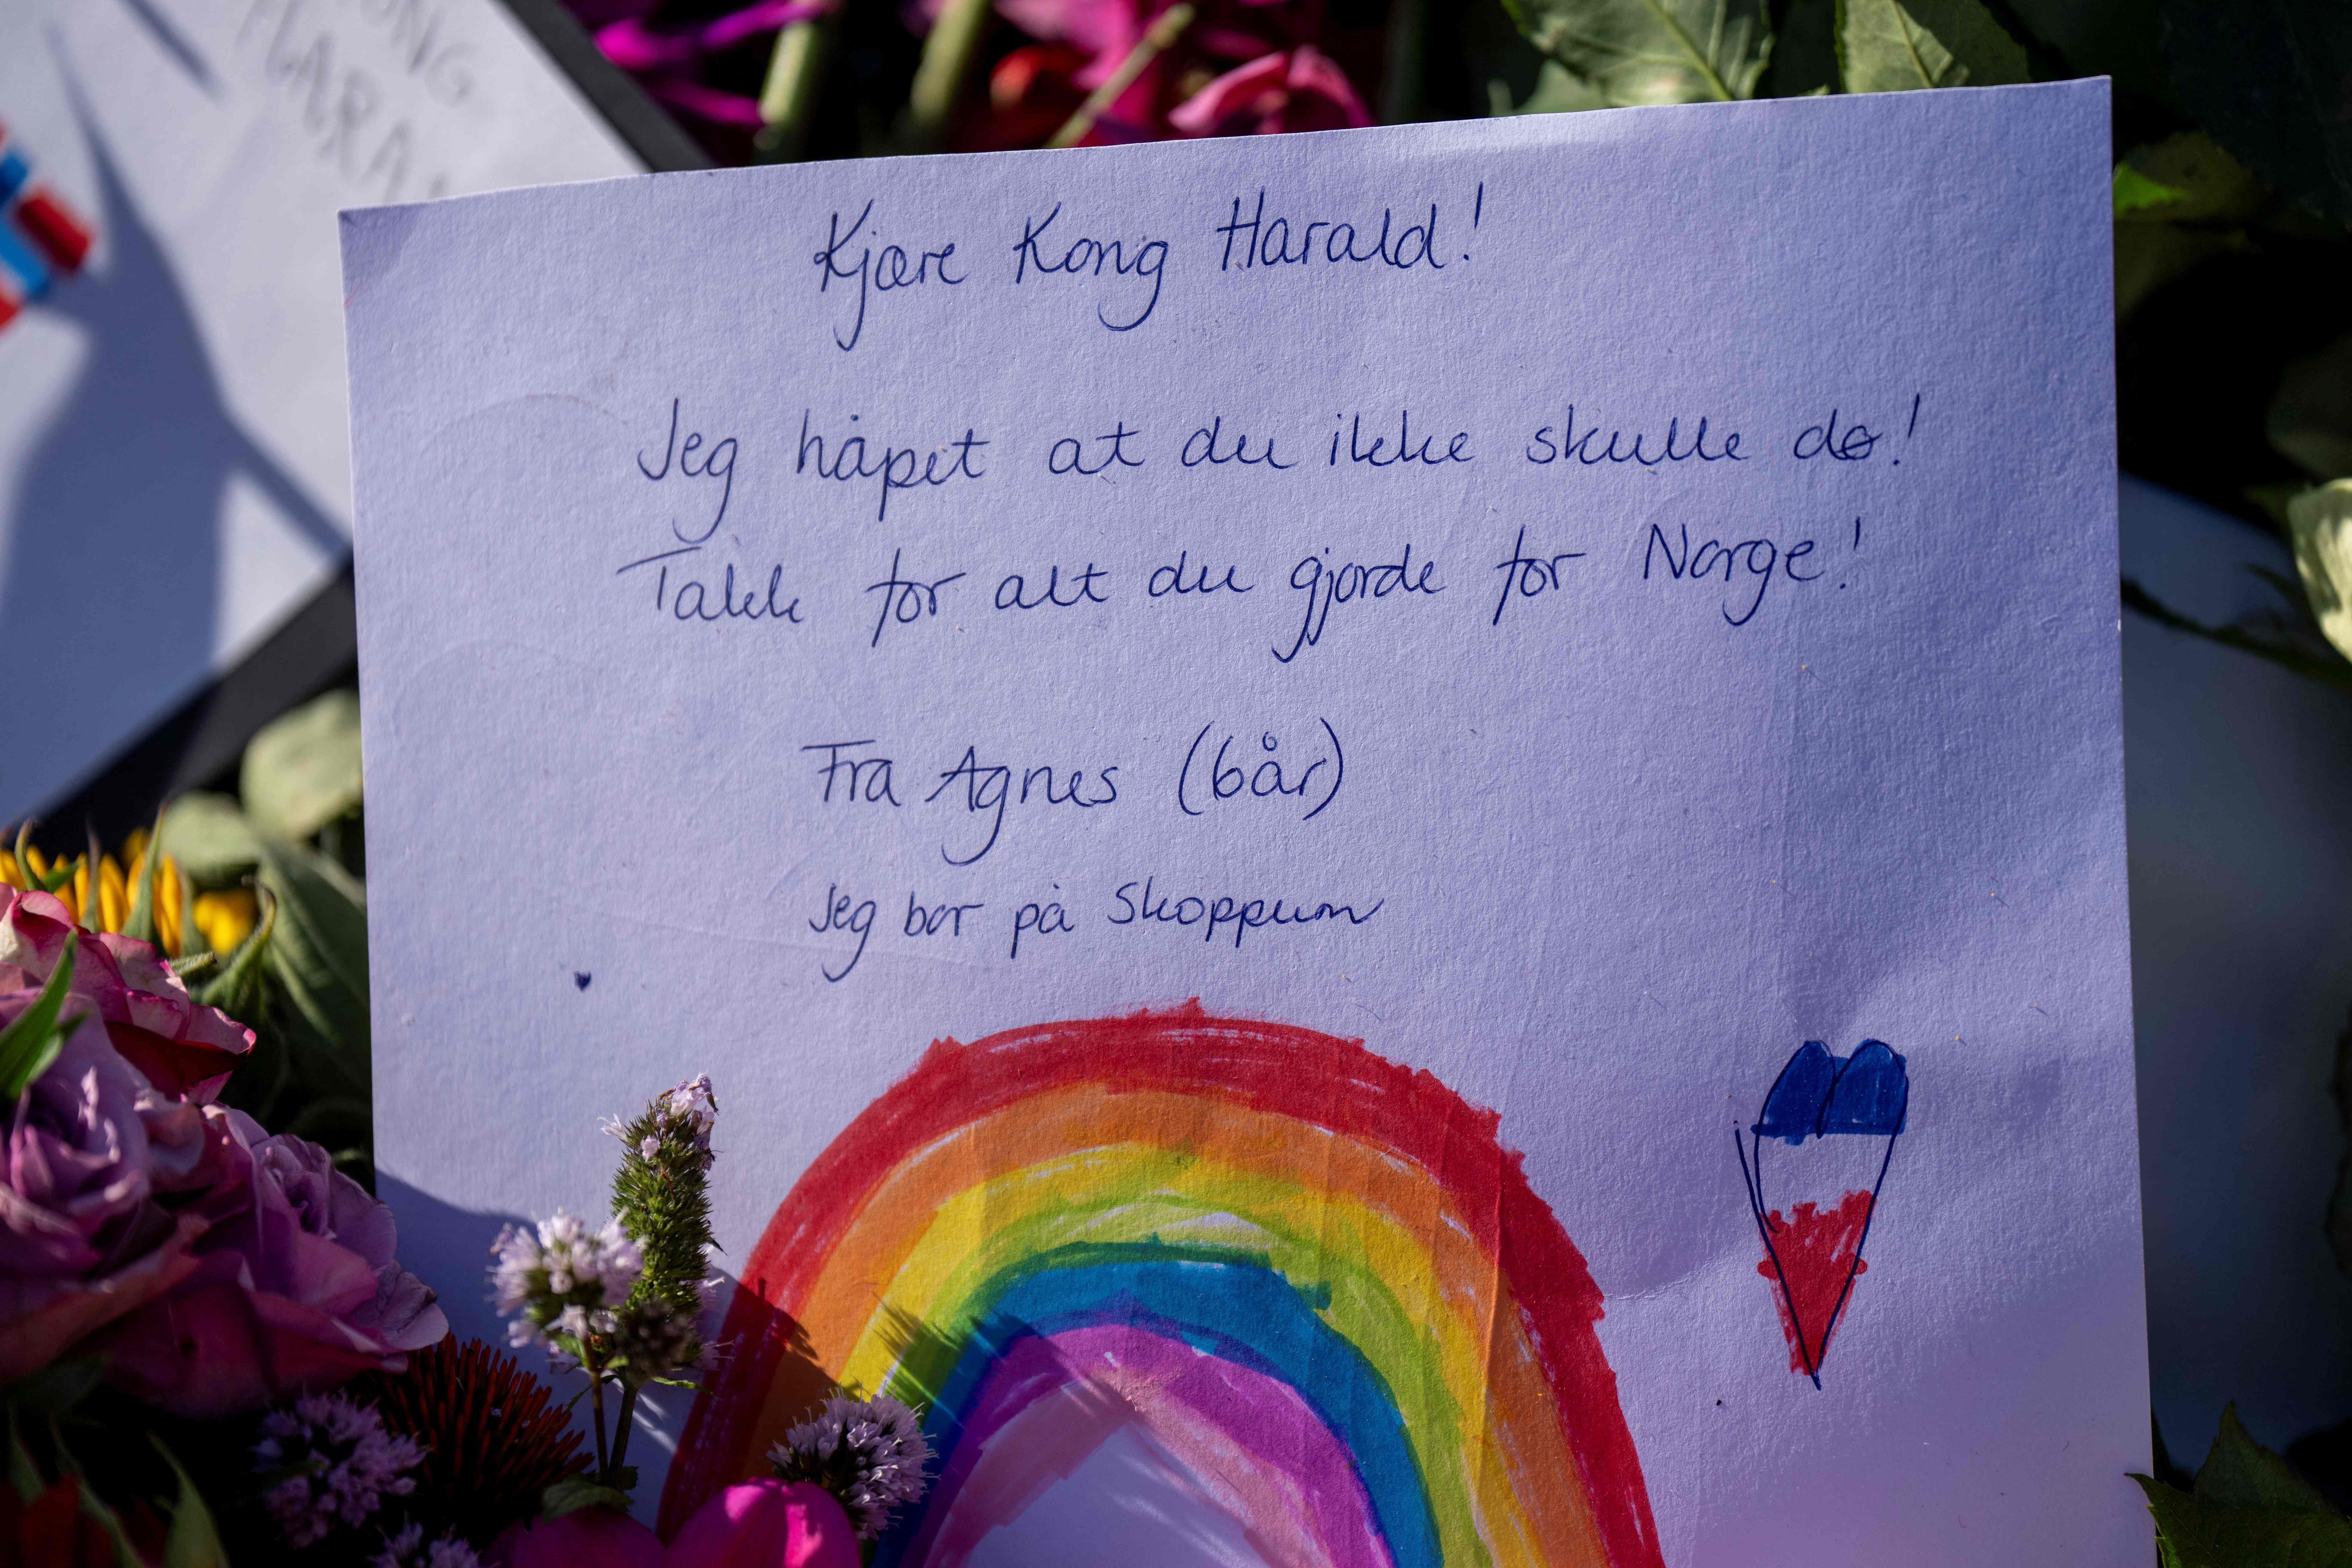 ONG
HARA
Kjære Kong Harald!
Jeg håpet at du ikke skulle dø!
Takk for alt du gjorde for Norge!
Fra Agnes (6 år)
Jeg bor på Skoppum